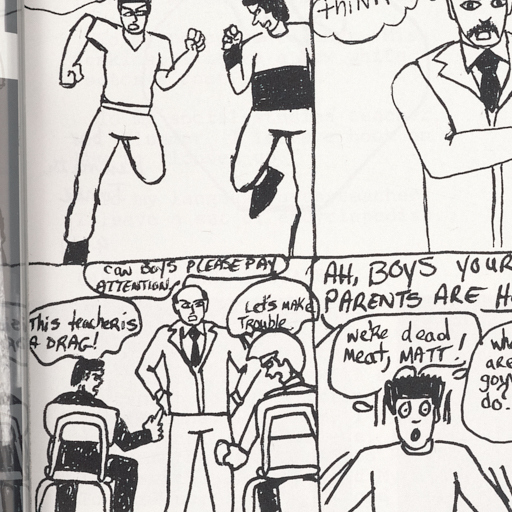 thiNK
CAN BOYS PLEASE PAY
ATTENTION.
This teacher is
A DRAG!
Let's make
Trouble.
AH, BOYS YOUR
PARENTS ARE
we're dead
Meat, MATT!
are
do.